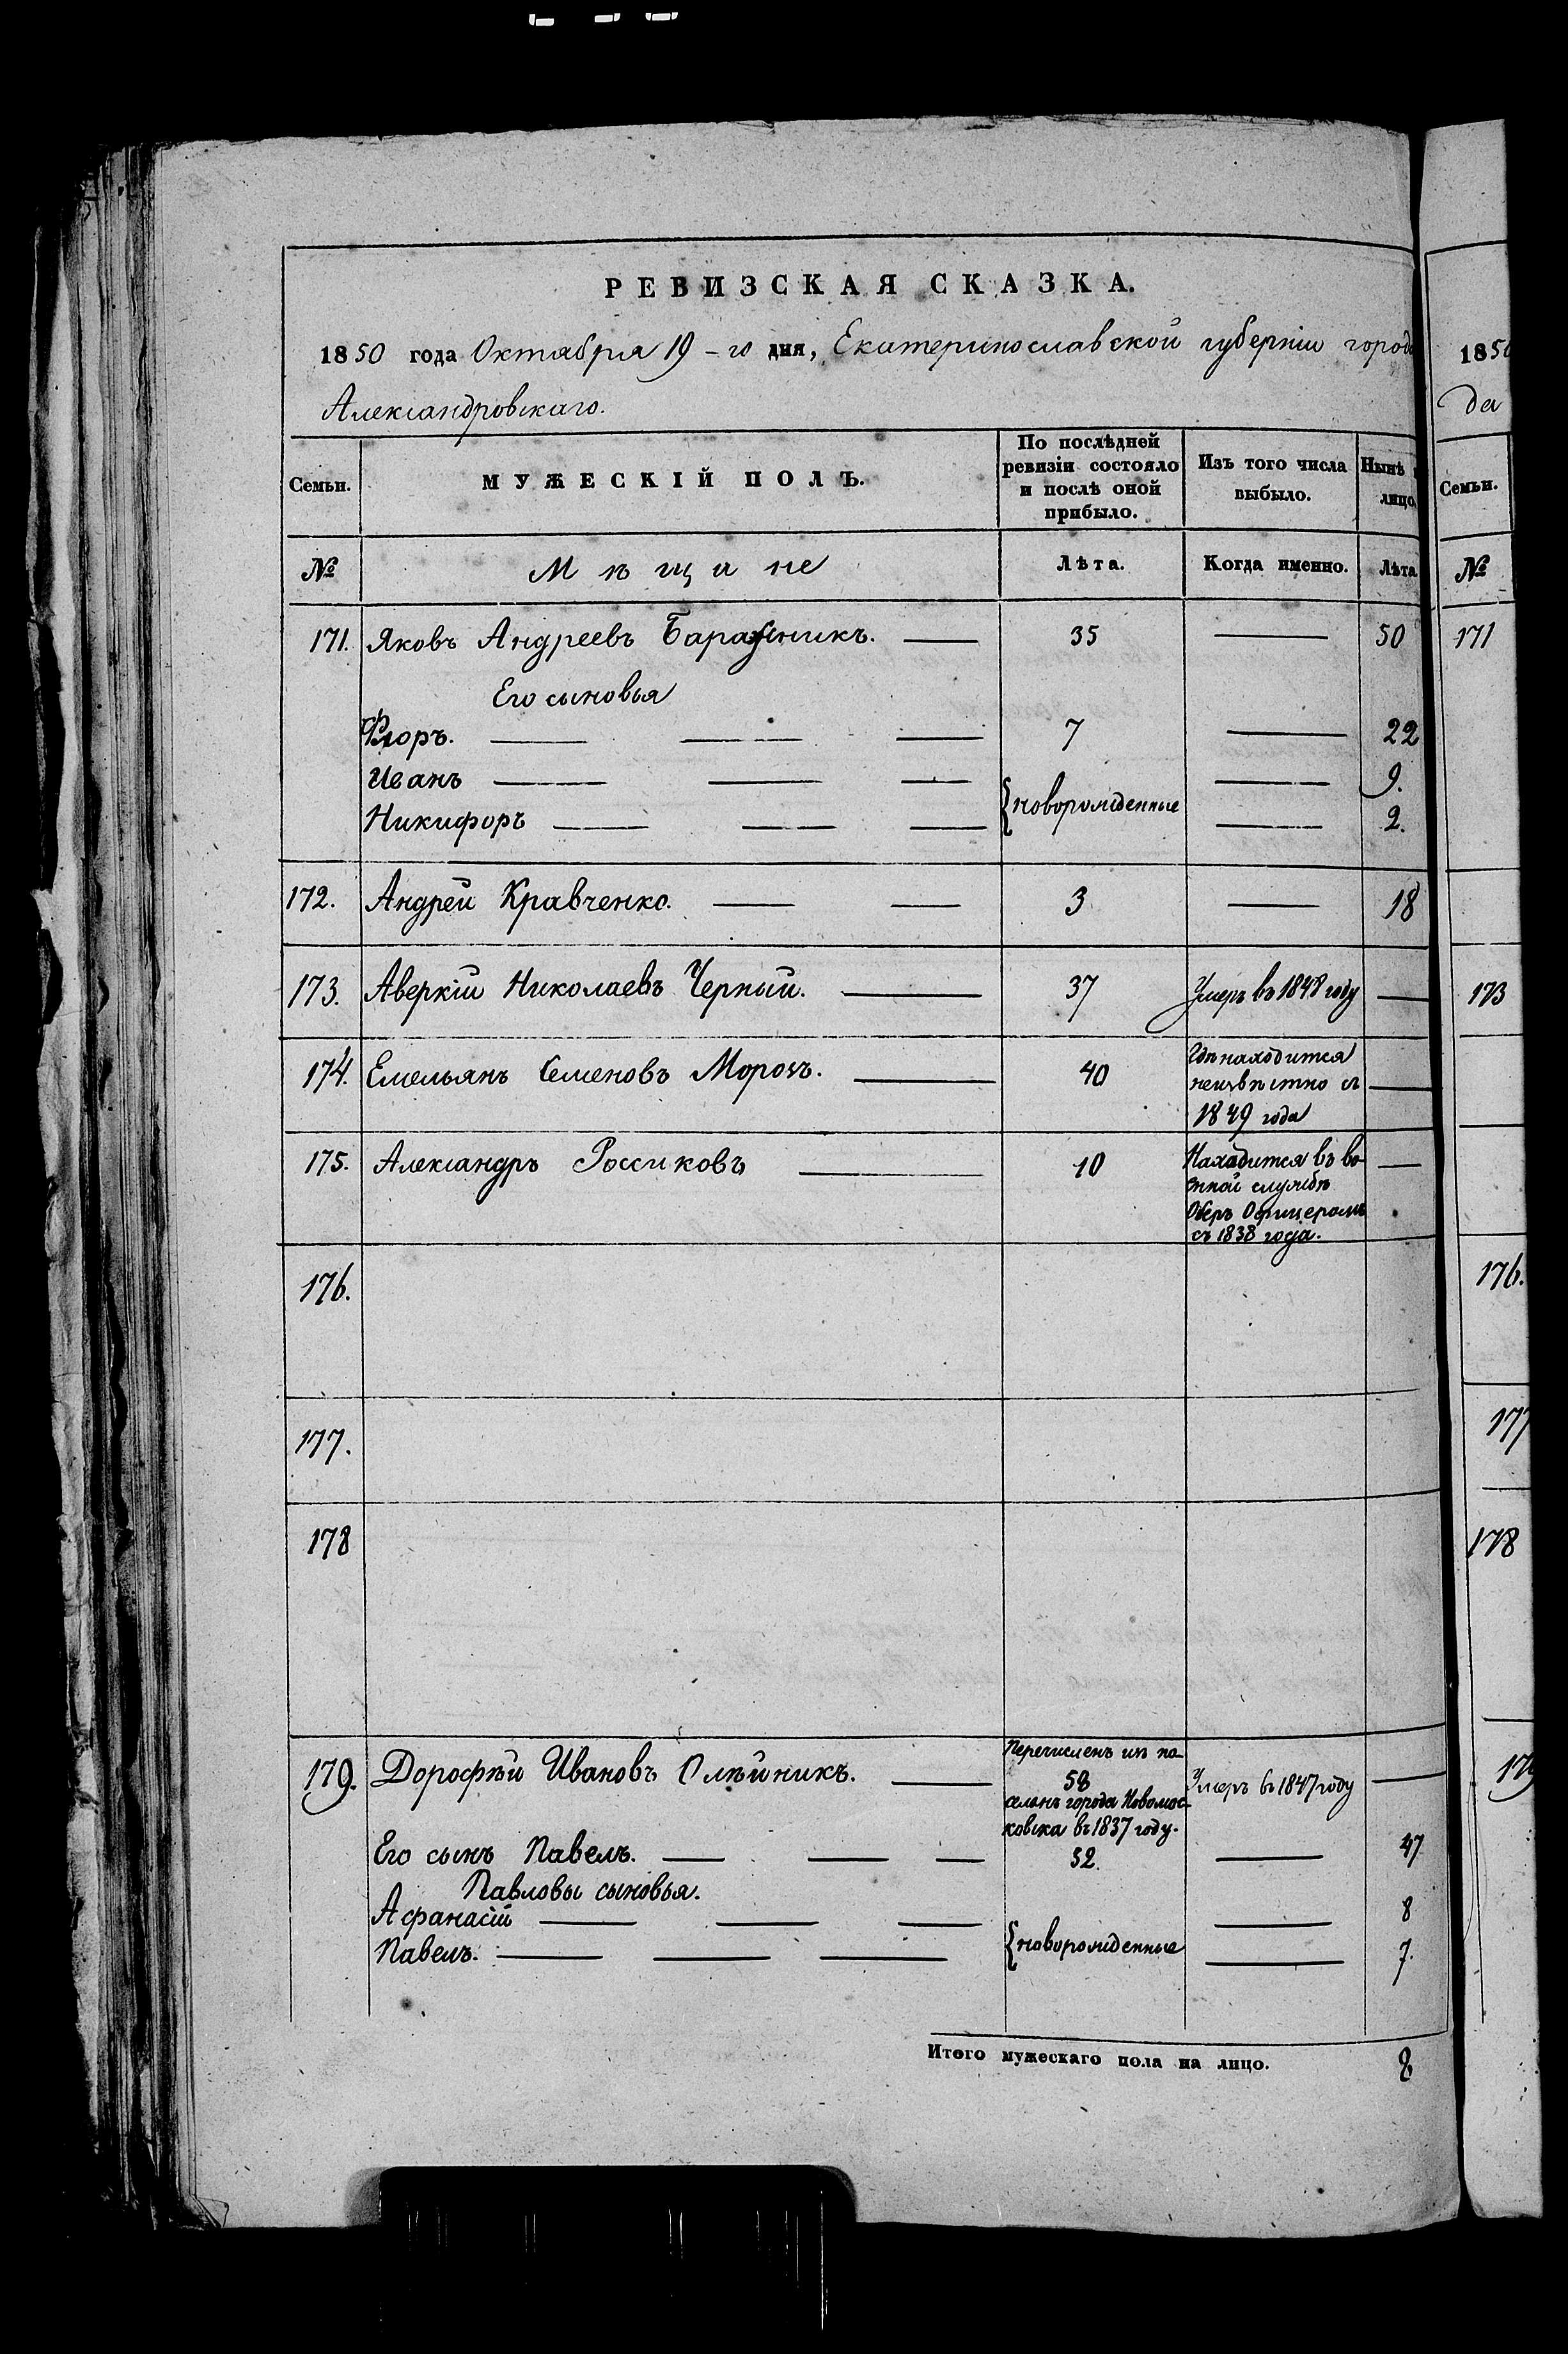 РЕВИЗСКАЯ СКАЗКА.
1850 года Октября 19-го дня, Екатеринославской губерніи города
Александровскаго.
Семьи.
МУЖЕСКІЙ ПОЛЪ.
По послѣдней
ревизіи состояло
и послѣ оной
прибыло.
Изъ того числа
выбыло.
Нынѣ
лицо.
№
Мѣщане
Лѣта.
Когда именно.
Лѣта
171. Яковъ Андреевъ 35 50
Его сыновья
Флоръ. 7 22
Иванъ 9.
новорожденные
Никифоръ 2.
172. Андрей Кравченко. 3 18
173. Аверкій Николаевъ Черный. 37 Умеръ въ 1848 году
174. Емельянъ Семеновъ Морозъ. 40 Гдѣ находится
неизвѣстно съ
1849 года
175. Александръ Россиковъ 10 Находится въ во-
енной службѣ
Оберъ Офицеромъ
съ 1838 года.
176.
177.
178
179. Дорофѣй Ивановъ Олѣйникъ. Перечисленъ изъ по-
58
селянъ города Новомос-
ковска въ 1837 году.
Умеръ въ 1847 году
Его сынъ Павелъ. 32. 47
Павловы сыновья.
Афанасій 8
новорожденные
Павелъ. 7.
Итого мужескаго пола на лицо. 8
1850
да
Семьи.
№
171
173
176.
177
178
179